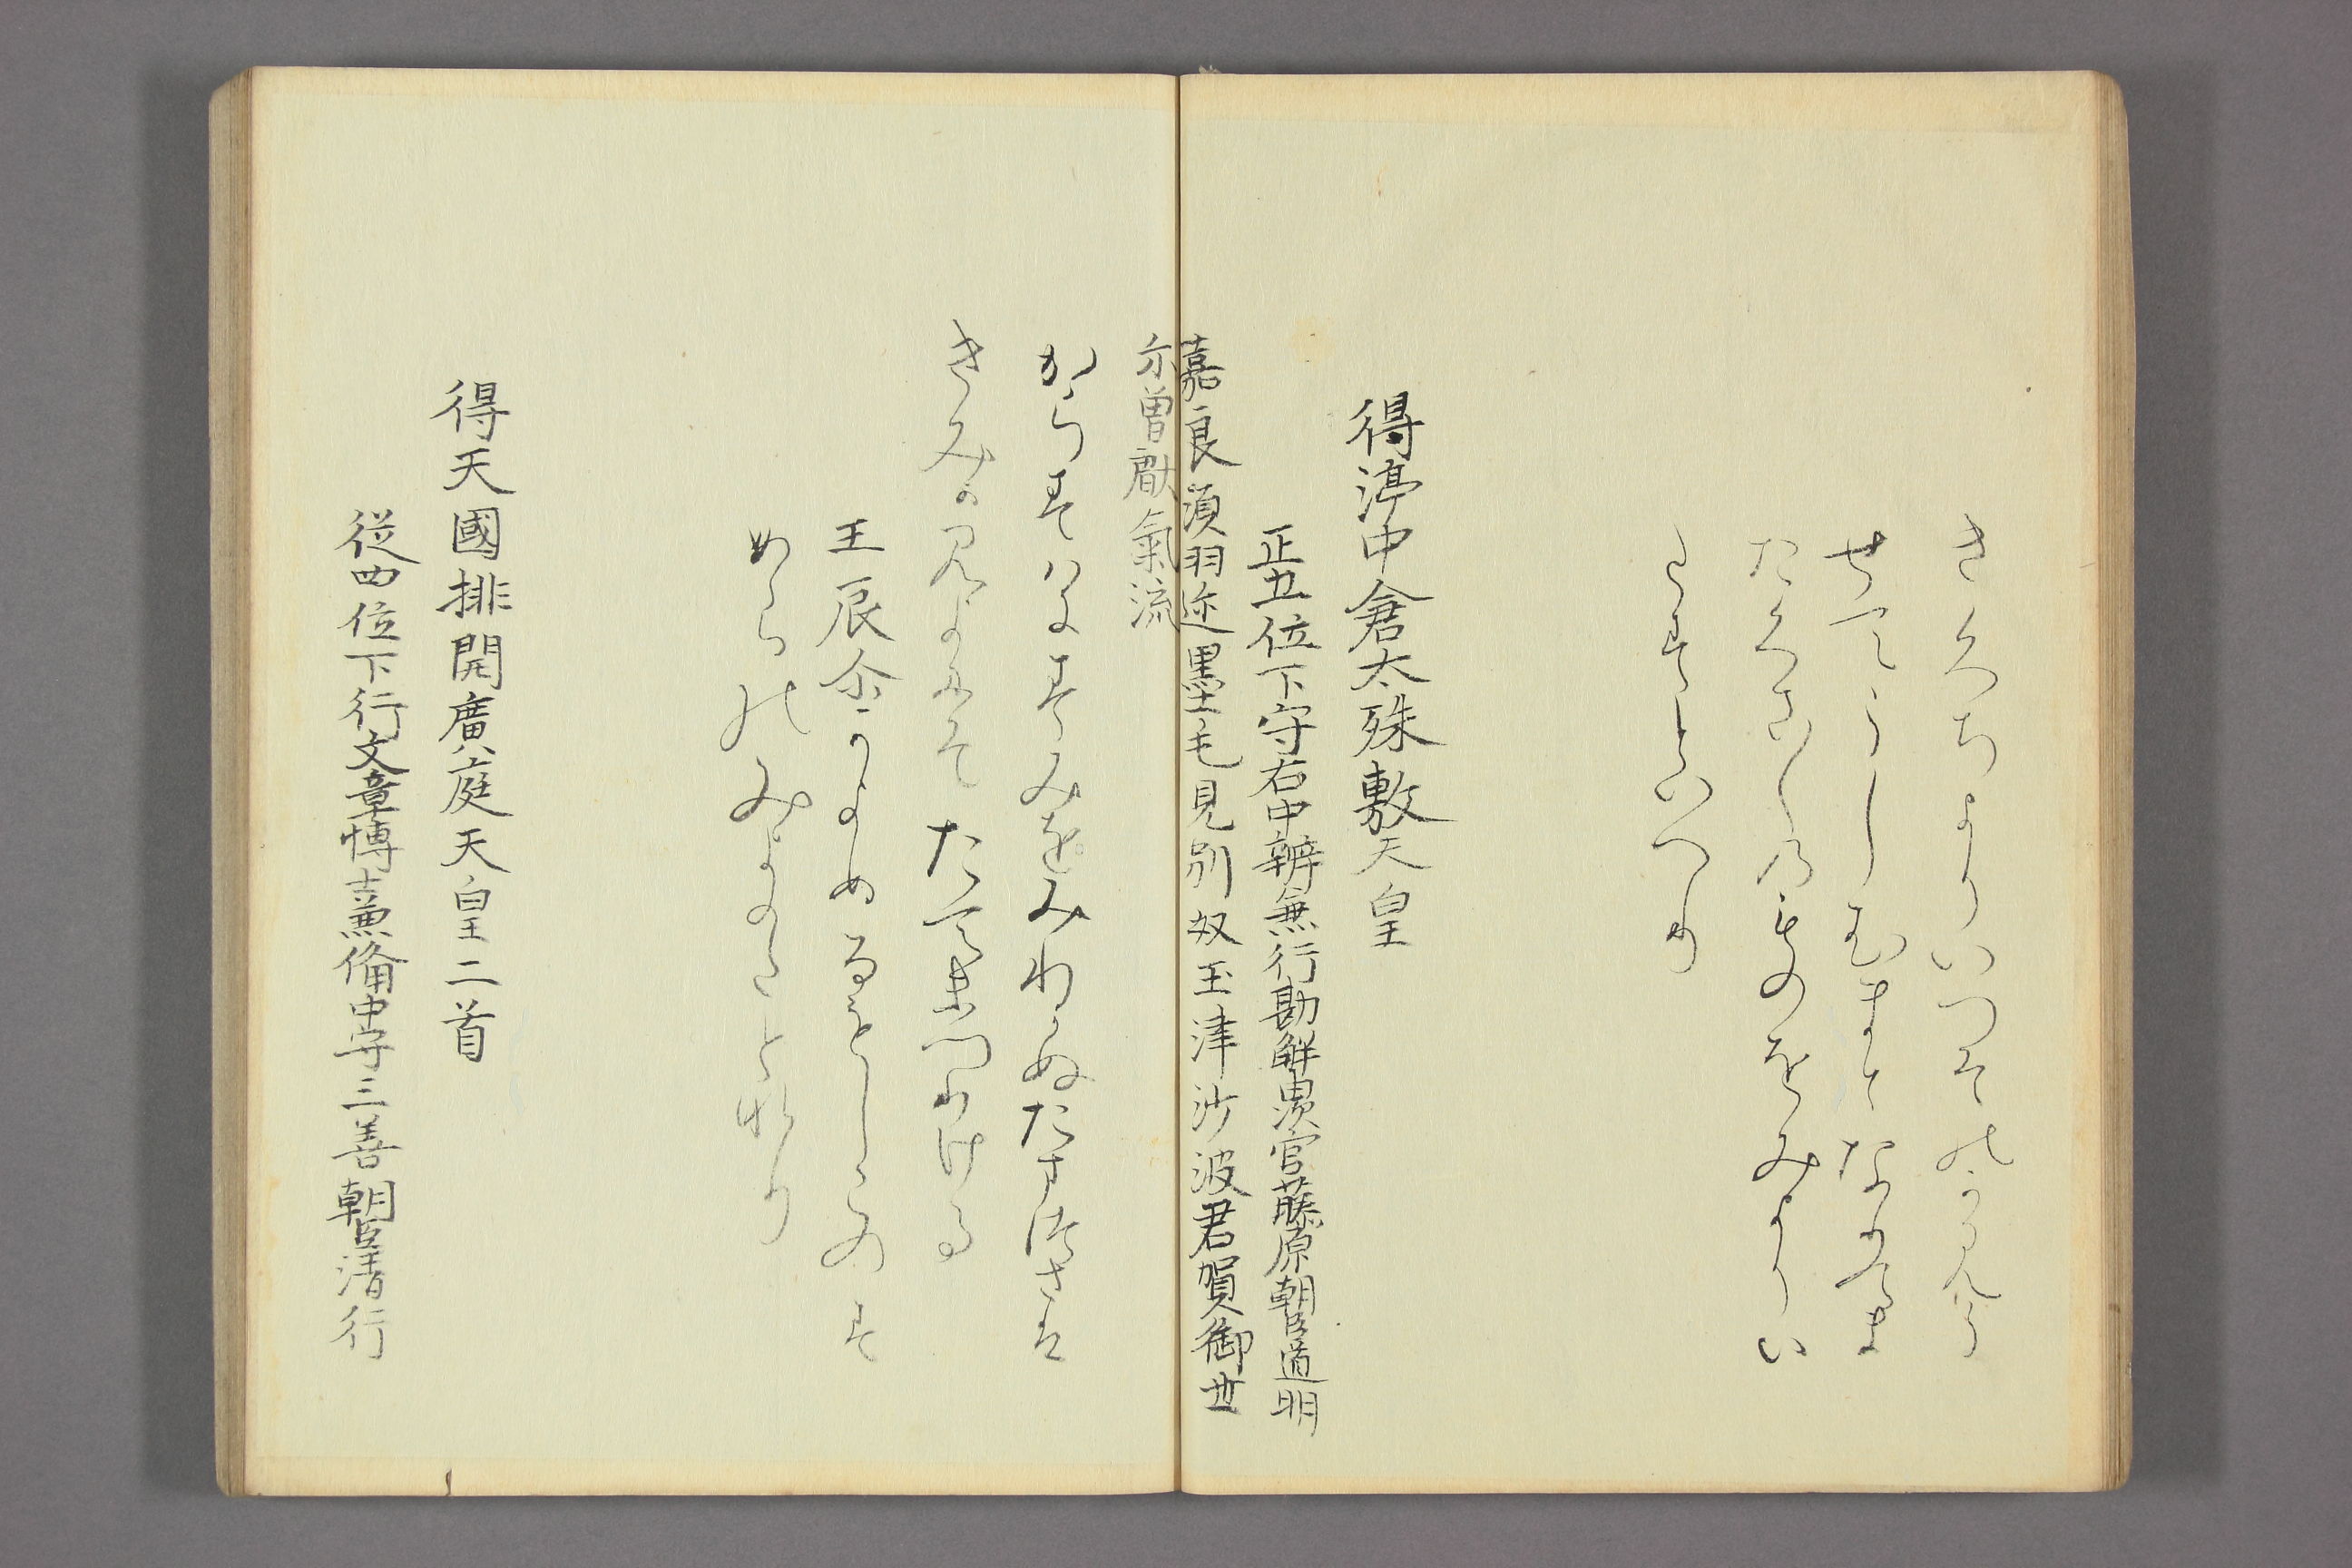 きくちよりいつそのかみう
せてうしむまとなりくるま
たくさしのものをみよりい
たすといへり
得渟中倉太殊敷天皇
正五位下守右中辨兼行勘解由次官藤原朝臣道明
嘉良須羽迩墨毛見別奴玉津沙波君賀御世
尓曽猒氣流
からすはにすみをみわかぬたまつさは
きみか見よにそたてまつりける
王辰尓かよめるをしこのす
めらのみよのことなり
得天國排開廣庭天皇二首
従四位下行文章博士兼備中守三善朝臣清行